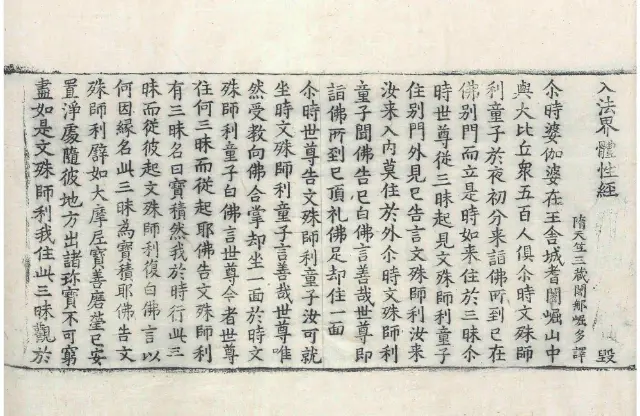 入法界體性經 毀
隋天竺三藏闍那崛多譯
尒時婆伽婆在王舍城耆闍崛山中
與大比丘衆五百人俱尒時文殊師
利童子於夜初分来詣佛所到已在
佛別門而立是時如来住於三昧尒
時世尊從三昧起見文殊師利童子
住別門外見已告言文殊師利汝来
汝来入内莫住於外尒時文殊師利
童子聞佛告已白佛言善哉世尊即
詣佛所到已頂礼佛足却住一面
尒時世尊告文殊師利童子汝可就
坐時文殊師利童子言善哉世尊唯
然受教向佛合掌却坐一面於時文
殊師利童子白佛言世尊今者世尊
住何三昧而從起耶佛告文殊師利
有三昧名曰寶積然我於時行此三
昧而從彼起文殊師利復白佛言以
何因緣名此三昧為寶積耶佛告文
殊師利譬如大摩尼寶善磨瑩已安
置淨處隨彼地方出諸珍寶不可窮
盡如是文殊師利我住此三昧觀於